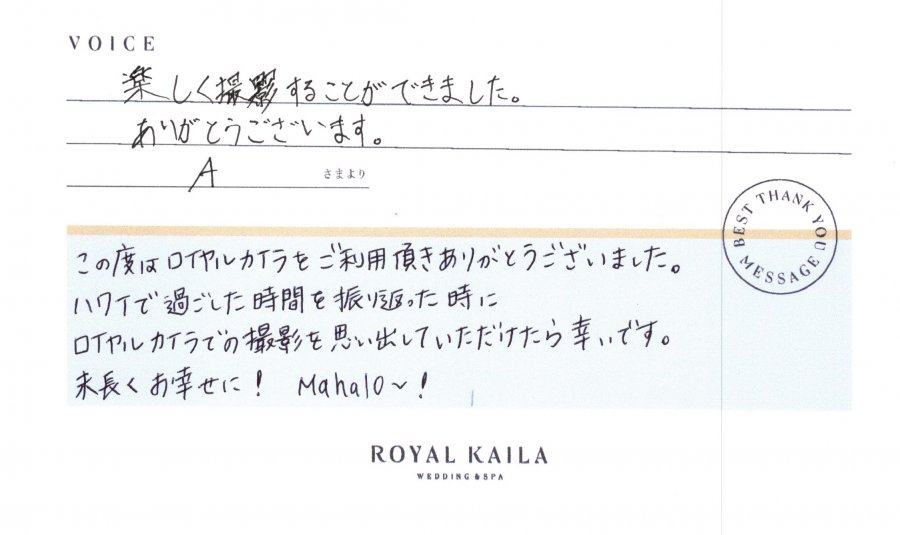 VOICE
楽しく撮影することができました。
ありがとうございます。
A さまより
BEST THANK YOU MESSAGE
この度はロイヤルカイラをご利用頂きありがとうございました。
ハワイで過ごした時間を振り返った時に
ロイヤルカイラでの撮影を思い出していただけたら幸いです。
末長くお幸せに! Mahalo~!
ROYAL KAILA
WEDDING & SPA